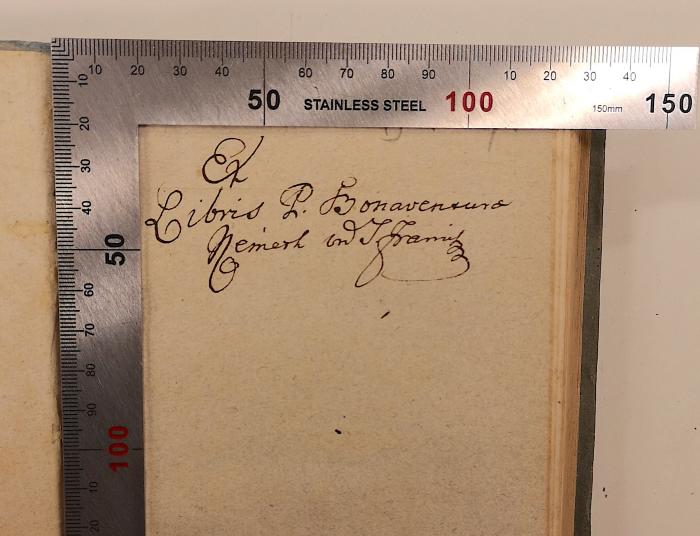 10 20 30 40 50 60 70 80 90 100 10 20 30 40 150
STAINLESS STEEL
150mm
10
20
30
40
50
60
70
80
90
100
10
20
Ex
Libris P. Bonaventuræ
Nemeth ord S Franis